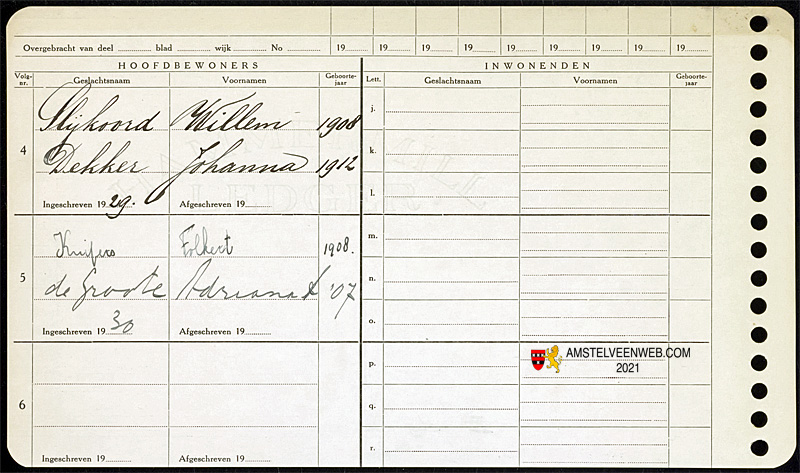 Overgebracht van deel ........ blad ........ wijk ........ No ........ 19.... 19.... 19.... 19.... 19.... 19.... 19.... 19.... 19....
HOOFDBEWONERS INWONENDEN
Volg-nr. Geslachtsnaam Voornamen Geboorte-jaar Lett. Geslachtsnaam Voornamen Geboorte-jaar
4 Slijkoord Willem 1908 j.
Dekker Johanna 1912 k.
Ingeschreven 19 29. Afgeschreven 19........ l.
Kuifers Folkert 1908. m.
5 de Groote Adriana '07 n.
Ingeschreven 19 30 Afgeschreven 19........ o.
p.
AMSTELVEENWEB.COM
2021
6 q.
Ingeschreven 19........ Afgeschreven 19........ r.